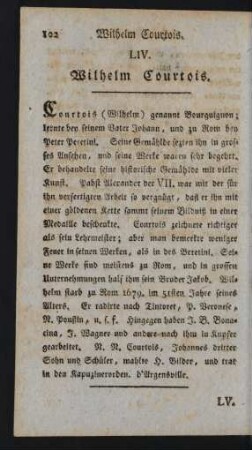 102 Wilhelm Courtois.
LIV.
Wilhelm Courtois.
Courtois (Wilhelm) genannt Bourguignon;
lernte bey seinem Vater Johann, und zu Rom bey
Peter Peretini. Seine Gemählde setzten ihn in gros-
ses Ansehen, und seine Werke waren sehr begehrt.
Er behandelte seine historische Gemählde mit vieler
Kunst. Pabst Alexander der VII. war mit der für
ihn verfertigten Arbeit so vergnügt, daß er ihn mit
einer goldenen Kette sammt seinem Bildniß in einer
Medaille beschenkte. Courtois zeichnete richtiger
als sein Lehrmeister; aber man bemerkte weniger
Feuer in seinen Werken, als in des Beretini. Sei-
ne Werke sind meistens zu Rom, und in grossen
Unternehmungen half ihm sein Bruder Jakob. Wil-
helm starb zu Rom 1679. im 51sten Jahre seines
Alters. Er radirte nach Tintoret, P. Veronese,
N. Poußin, u. s. f. Hingegen haben J. B. Bona-
cina, J. Wagner und andere nach ihm in Kupfer
gearbeitet. N. N. Courtois, Johannes dritter
Sohn und Schüler, mahlte H. Bilder, und trat
in den Kapuzinerorden. d'Argensville.
LV.